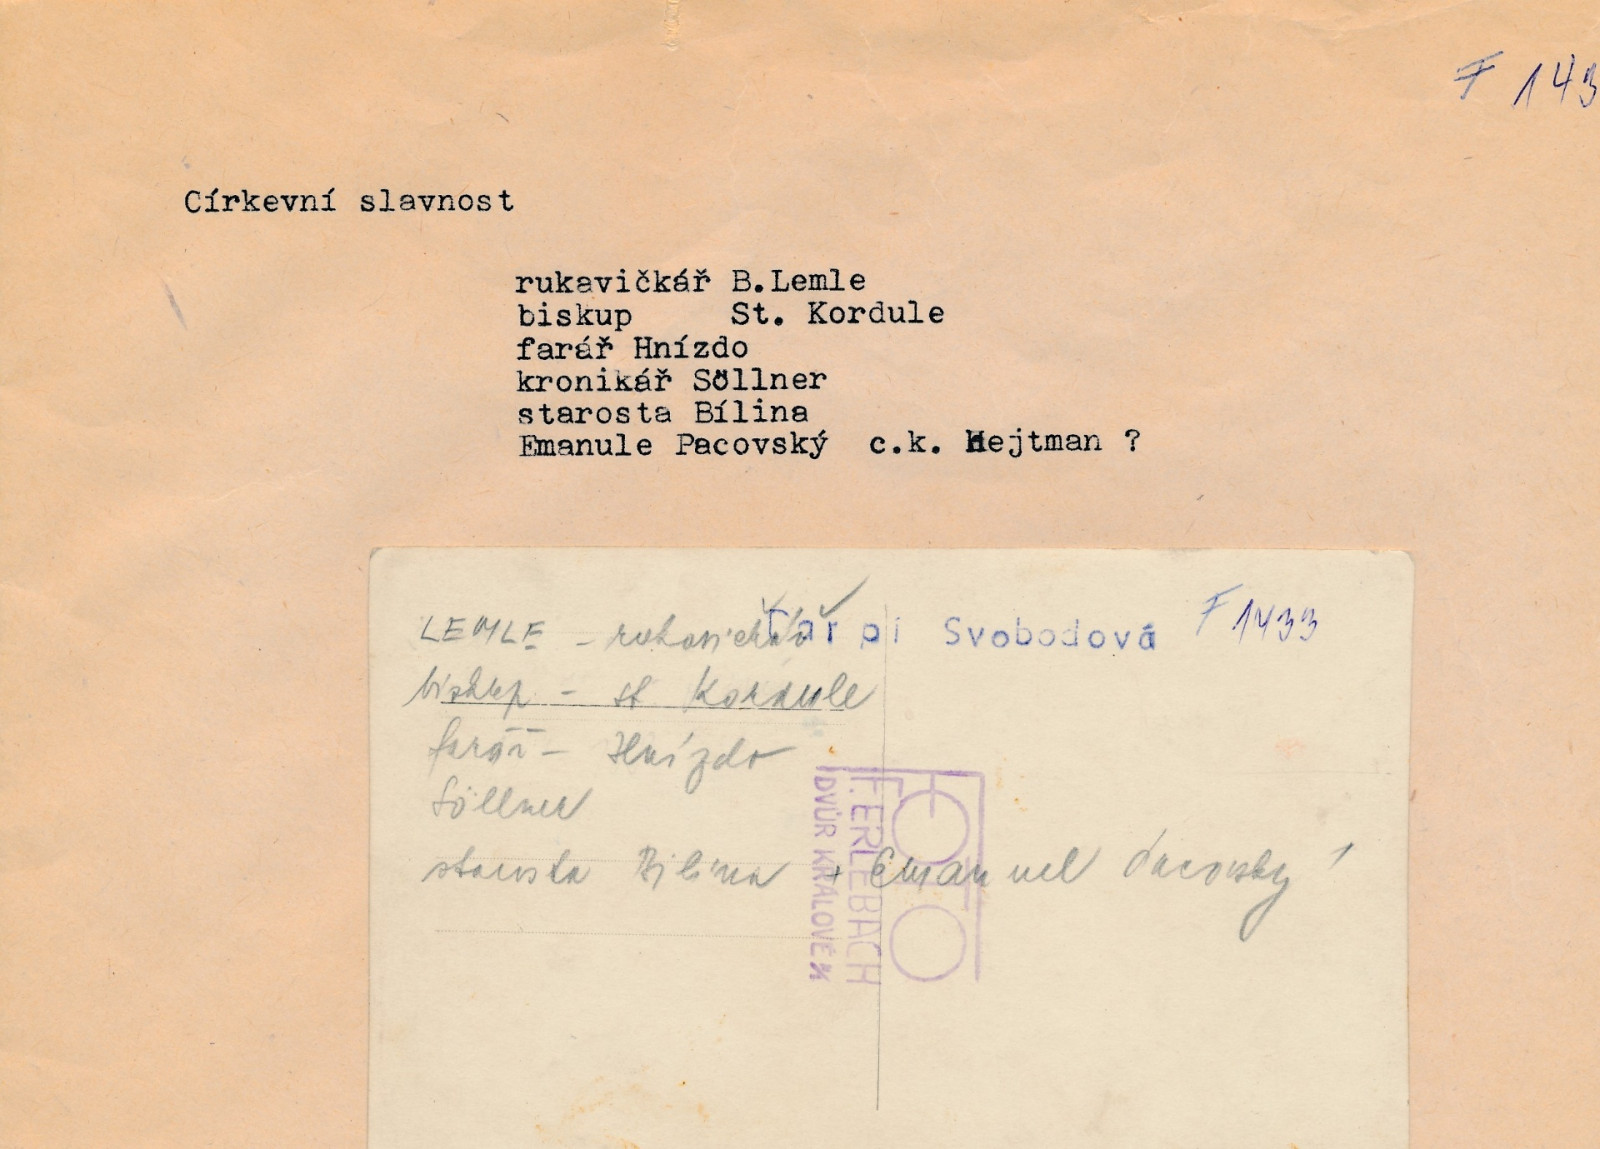 F 143
Církevní slavnost
rukavičkář B.Lemle
biskup St. Kordule
farář Hnízdo
kronikář Söllner
starosta Bílina
Emanule Pacovský c.k. Hejtman ?
LEMLE – rukavičkář
pí Svobodová F 1433
biskup – st Kordule
farář – Hnízdo
Söllner
starosta Bilina + Emanuel Pacovský
FOTO
F. ERLEBACH
DVŮR KRÁLOVÉ